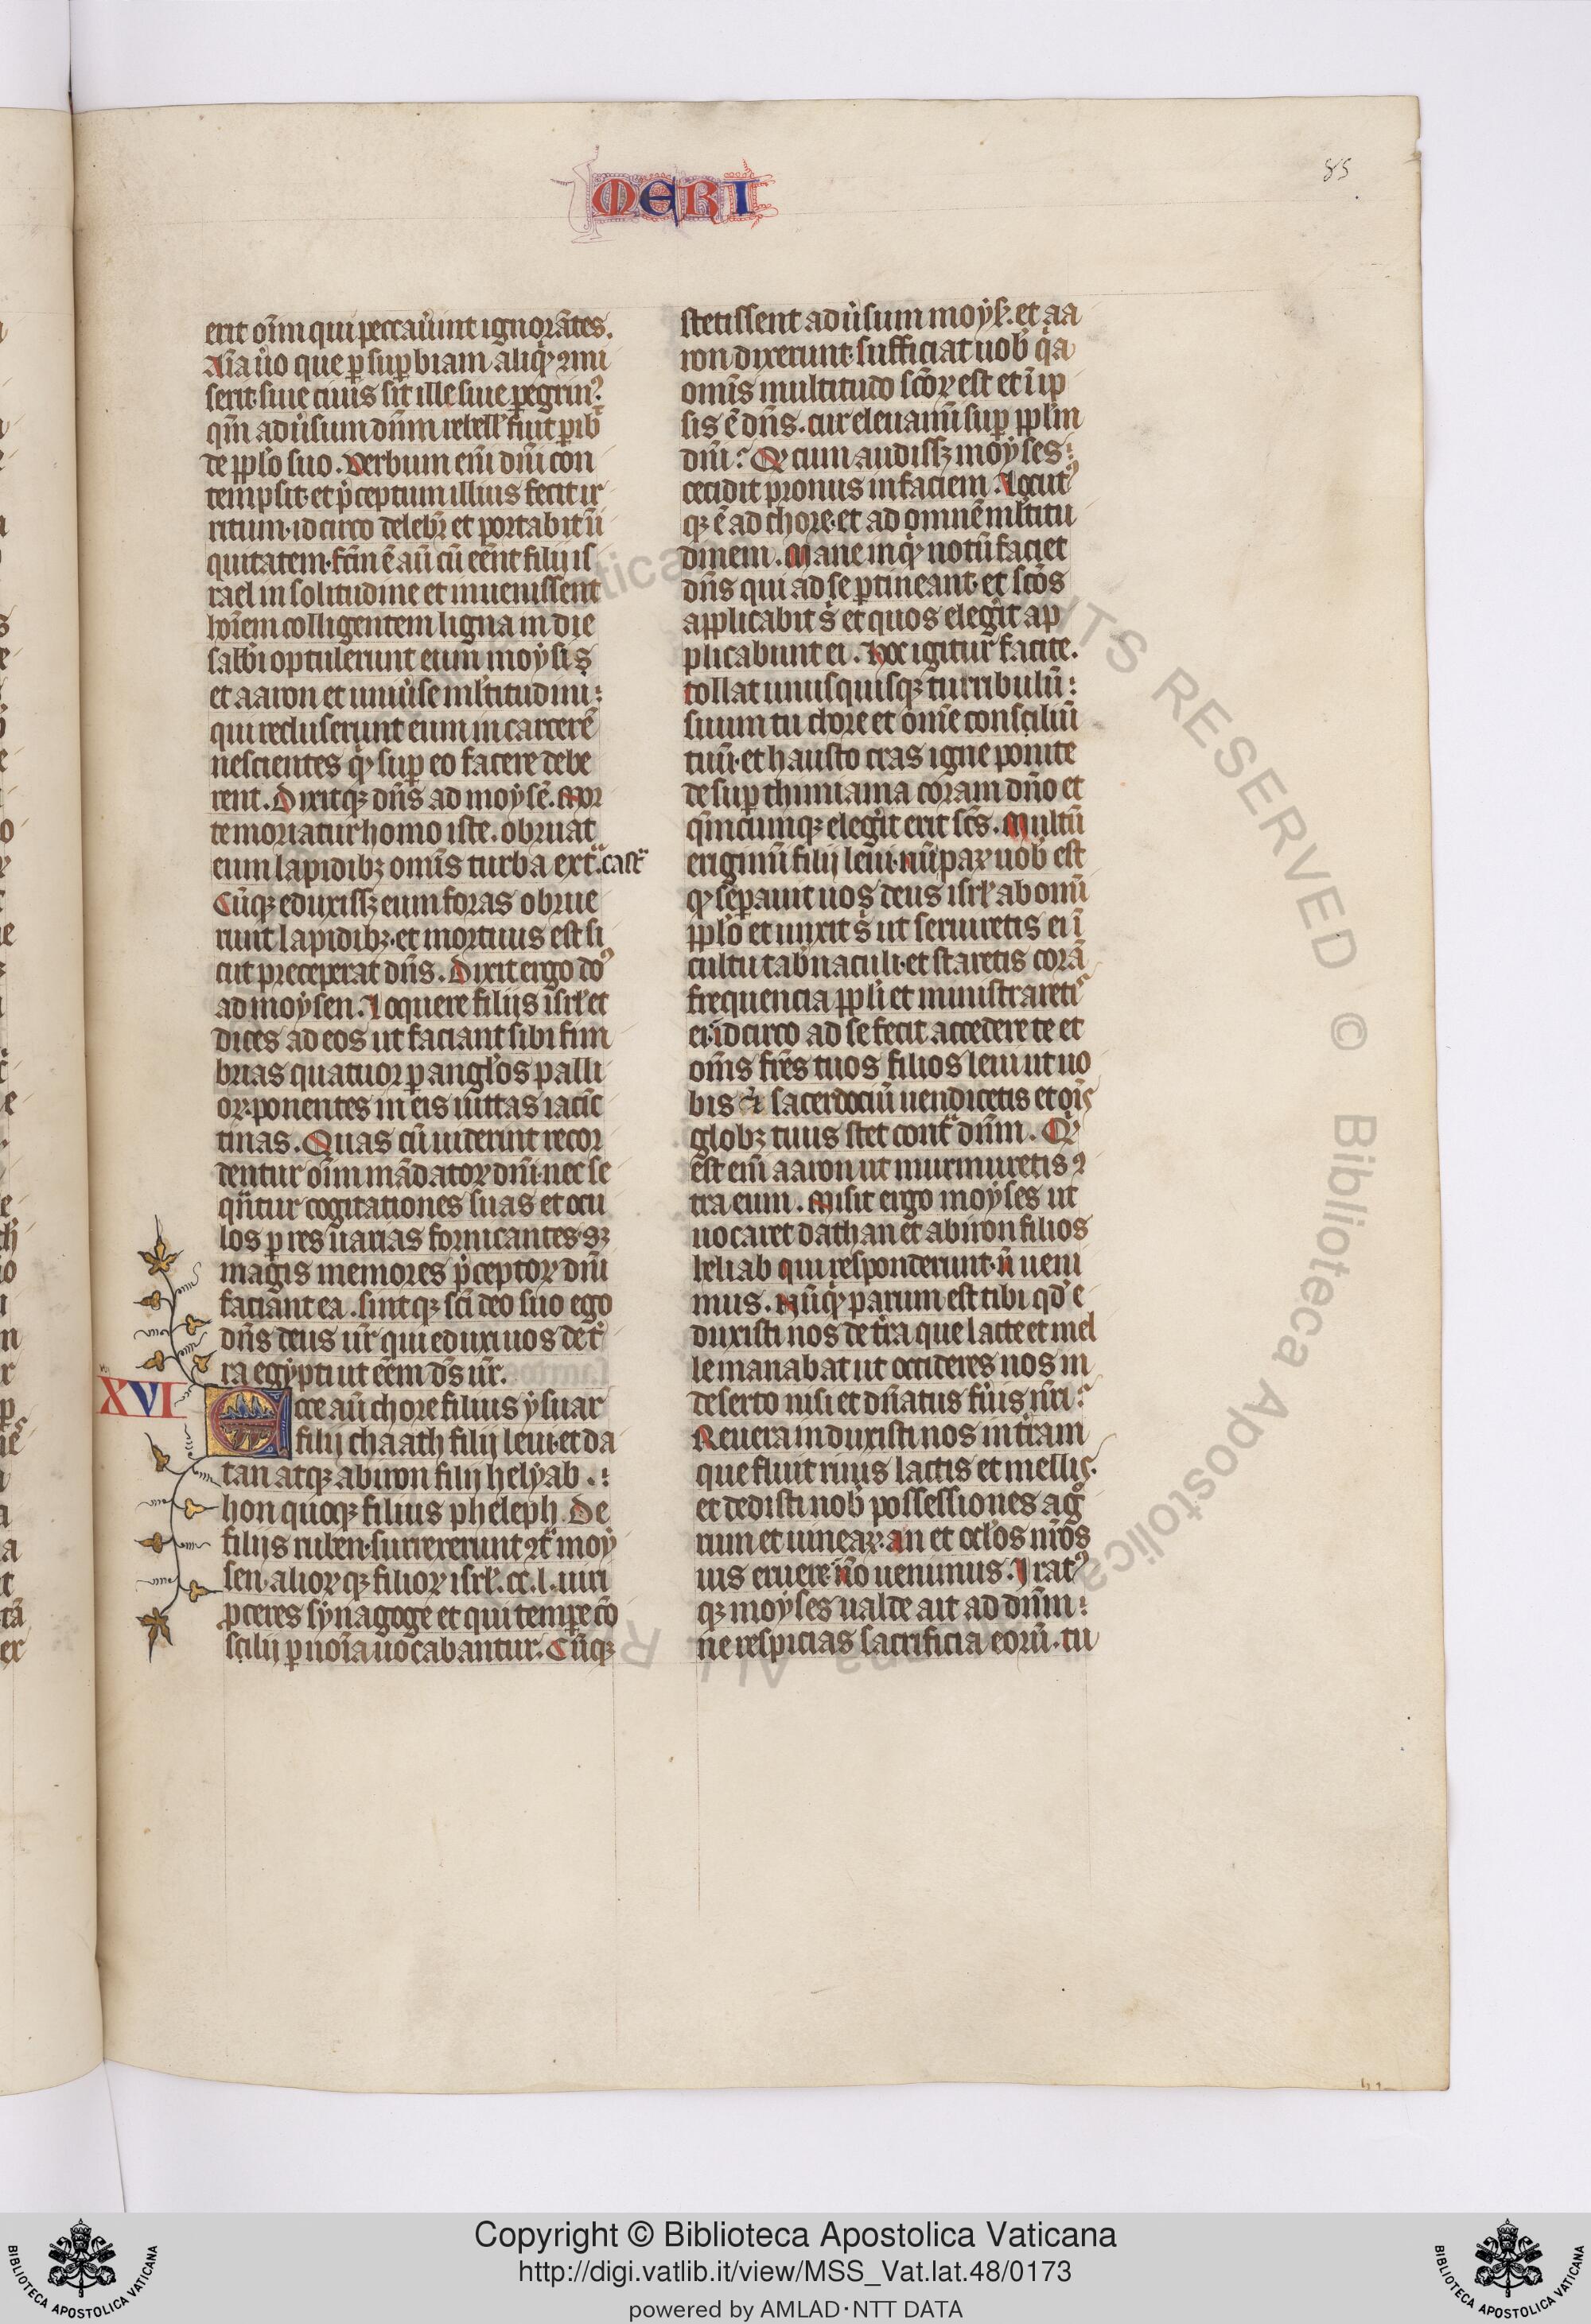 MERI
85
erit oīm qui peccaűint ignorātes.
Aīa ůo que ꝑ suꝑbiam aliqͥd ꝯmi
serit· siue ciuis sit ille siue peregrinꝰ.
qm̄ adůsum dn̄m rebell' fuit ꝑibͭ
de pplo suo. Verbum em̄ dn̄i con
tempsit· et p̄ceptum illius fecit ir
ritum· idcirco delebit̉ et portabit īi
quitatem· fc̄m ē aū cū eēnt filij is
rael in solitudine et inuenissent
hoīem colligentem ligna in die
sabb̄i optulerunt eum moysi
et aaron et uniůse ml̄titudini:
qui recluserunt eum in carcerē
nescientes qͥd suꝑ eo facere debe
rent. Dixitqꝫ dn̄s ad moysē. Mor
te moriatur homo iste. obruat
eum lapidibꝫ om̄is turba extᷓ castᷓ
Cūqꝫ eduxissꝫ eum foras obrue
runt lapidibꝫ· et mortuus est si
cut preceperat dn̄s. Dixit ergo do᷒
ad moysen. Loquere filijs isrl̄ et
dices ad eos ut faciant sibi fim
brias quatuor ꝑ angl̄os palli
oꝝ· ponentes in eis uittas iacīc
tinas. Quas cū uiderint recor
dentur oīm mādatoꝝ dn̄i· nec se
qn̄tur cogitationes suas et ocu
los ꝑ res uarias fornicantes· sꝫ
magis memores p̄ceptoꝝ dn̄i
faciant ea. sintqꝫ sc̄i deo suo ego
dn̄s deus ur̄ qui eduxi uos de t̉
ra egypti ut eēm ds̄ ur̄.
XVI
Ecce aū chore filius ysuar
filij chaath filij leui· et da
tan atqꝫ abiron filij helyab .:
hon quoqꝫ filius pheleph De
filijs ruben· surrexerunt ꝯtᷓ moy
sen· alioꝝqꝫ filioꝝ isrl̄. cc. l. uiri
ꝓceres synagoge et qui tempe cō
scilij ꝑ noīa uocabantur. Cūqꝫ
stetissent adůsum moysē. et aa
ron dixerunt· sufficiat uob̄ qͥa
om̄is multitudo sc̄oꝝ est et ī ip
sis ē dn̄s. cur eleuamī suꝑ ppl̄m
dn̄i? Qͩ cum audissꝫ moyses:
cecidit pronus in faciem. Locutꝰ
qꝫ ē ad chore· et ad omnē ml̄titu
dinem. Mane inqͥt notū faciet
dn̄s qui ad se ꝑtineant· et sc̄os
applicabit s᷒ et quos elegit ap
plicabunt ei. Hoc igitur facite.
tollat unusquisqꝫ turribulū:
suum tu chore et om̄e consciliū
tuū· et hausto cras igne ponite
desuꝑ thimiama coram dn̄o et
qmcumqꝫ elegit erit sc̄s. Multū
erigimī filij leui· nū paꝝ uob̄ est
qͩ seꝑauit uos deus isrl̄ ab om̄i
pplo et iunxit s᷒ ut seruiretis ei ī
cultu tab̄naculi· et staretis corā
frequencia ppli et ministraretis
ei· idcirco ad se fecit accedere te et
om̄s fr̄es tuos filios leui ut uo
bis et̄ sacerdociū uendicetis et oīs
globꝫ tuus stet cont̄ dn̄m. Qͥd
est em̄ aaron ut murmuretis ꝯ
tra eum. Misit ergo moyses ut
uocaret dathan et abiron filios
heliab qui responderunt· n̄ ueni
mus. Nūqͥd parum est tibi qd̄ e
duxisti nos de tr̄a que lacte et mel
le manabat ut occideres nos in
deserto nisi et dn̄atus fůis nr̄i?
Reuera induxisti nos in tr̄am
que fluit riuis lactis et mellis·
et dedisti nob̄ possessiones agͦ
rum et uineaꝝ· an et ocl̄os nr̄os
uis eruere· n̄o uenimus. Iratꝰ
qꝫ moyses ualde ait ad dn̄m:
ne respicias sacrificia eorū. tu
Copyright © Biblioteca Apostolica Vaticana
http://digi.vatlib.it/view/MSS_Vat.lat.48/0173
powered by AMLAD·NTT DATA
BIBLIOTECA APOSTOLICA VATICANA
BIBLIOTECA APOSTOLICA VATICANA